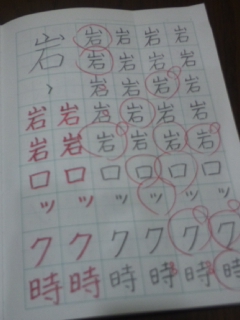 岩 岩 岩 岩 岩
岩 岩 岩 岩
ヽ 岩 岩 岩 岩
岩 岩 岩 岩 岩 岩
岩 岩 岩 岩 岩 岩
ロ ロ ロ ロ ロ ロ
ッ ッ ッ ッ ッ ッ
ク ク ク ク ク ク
時 時 時 時 時 時